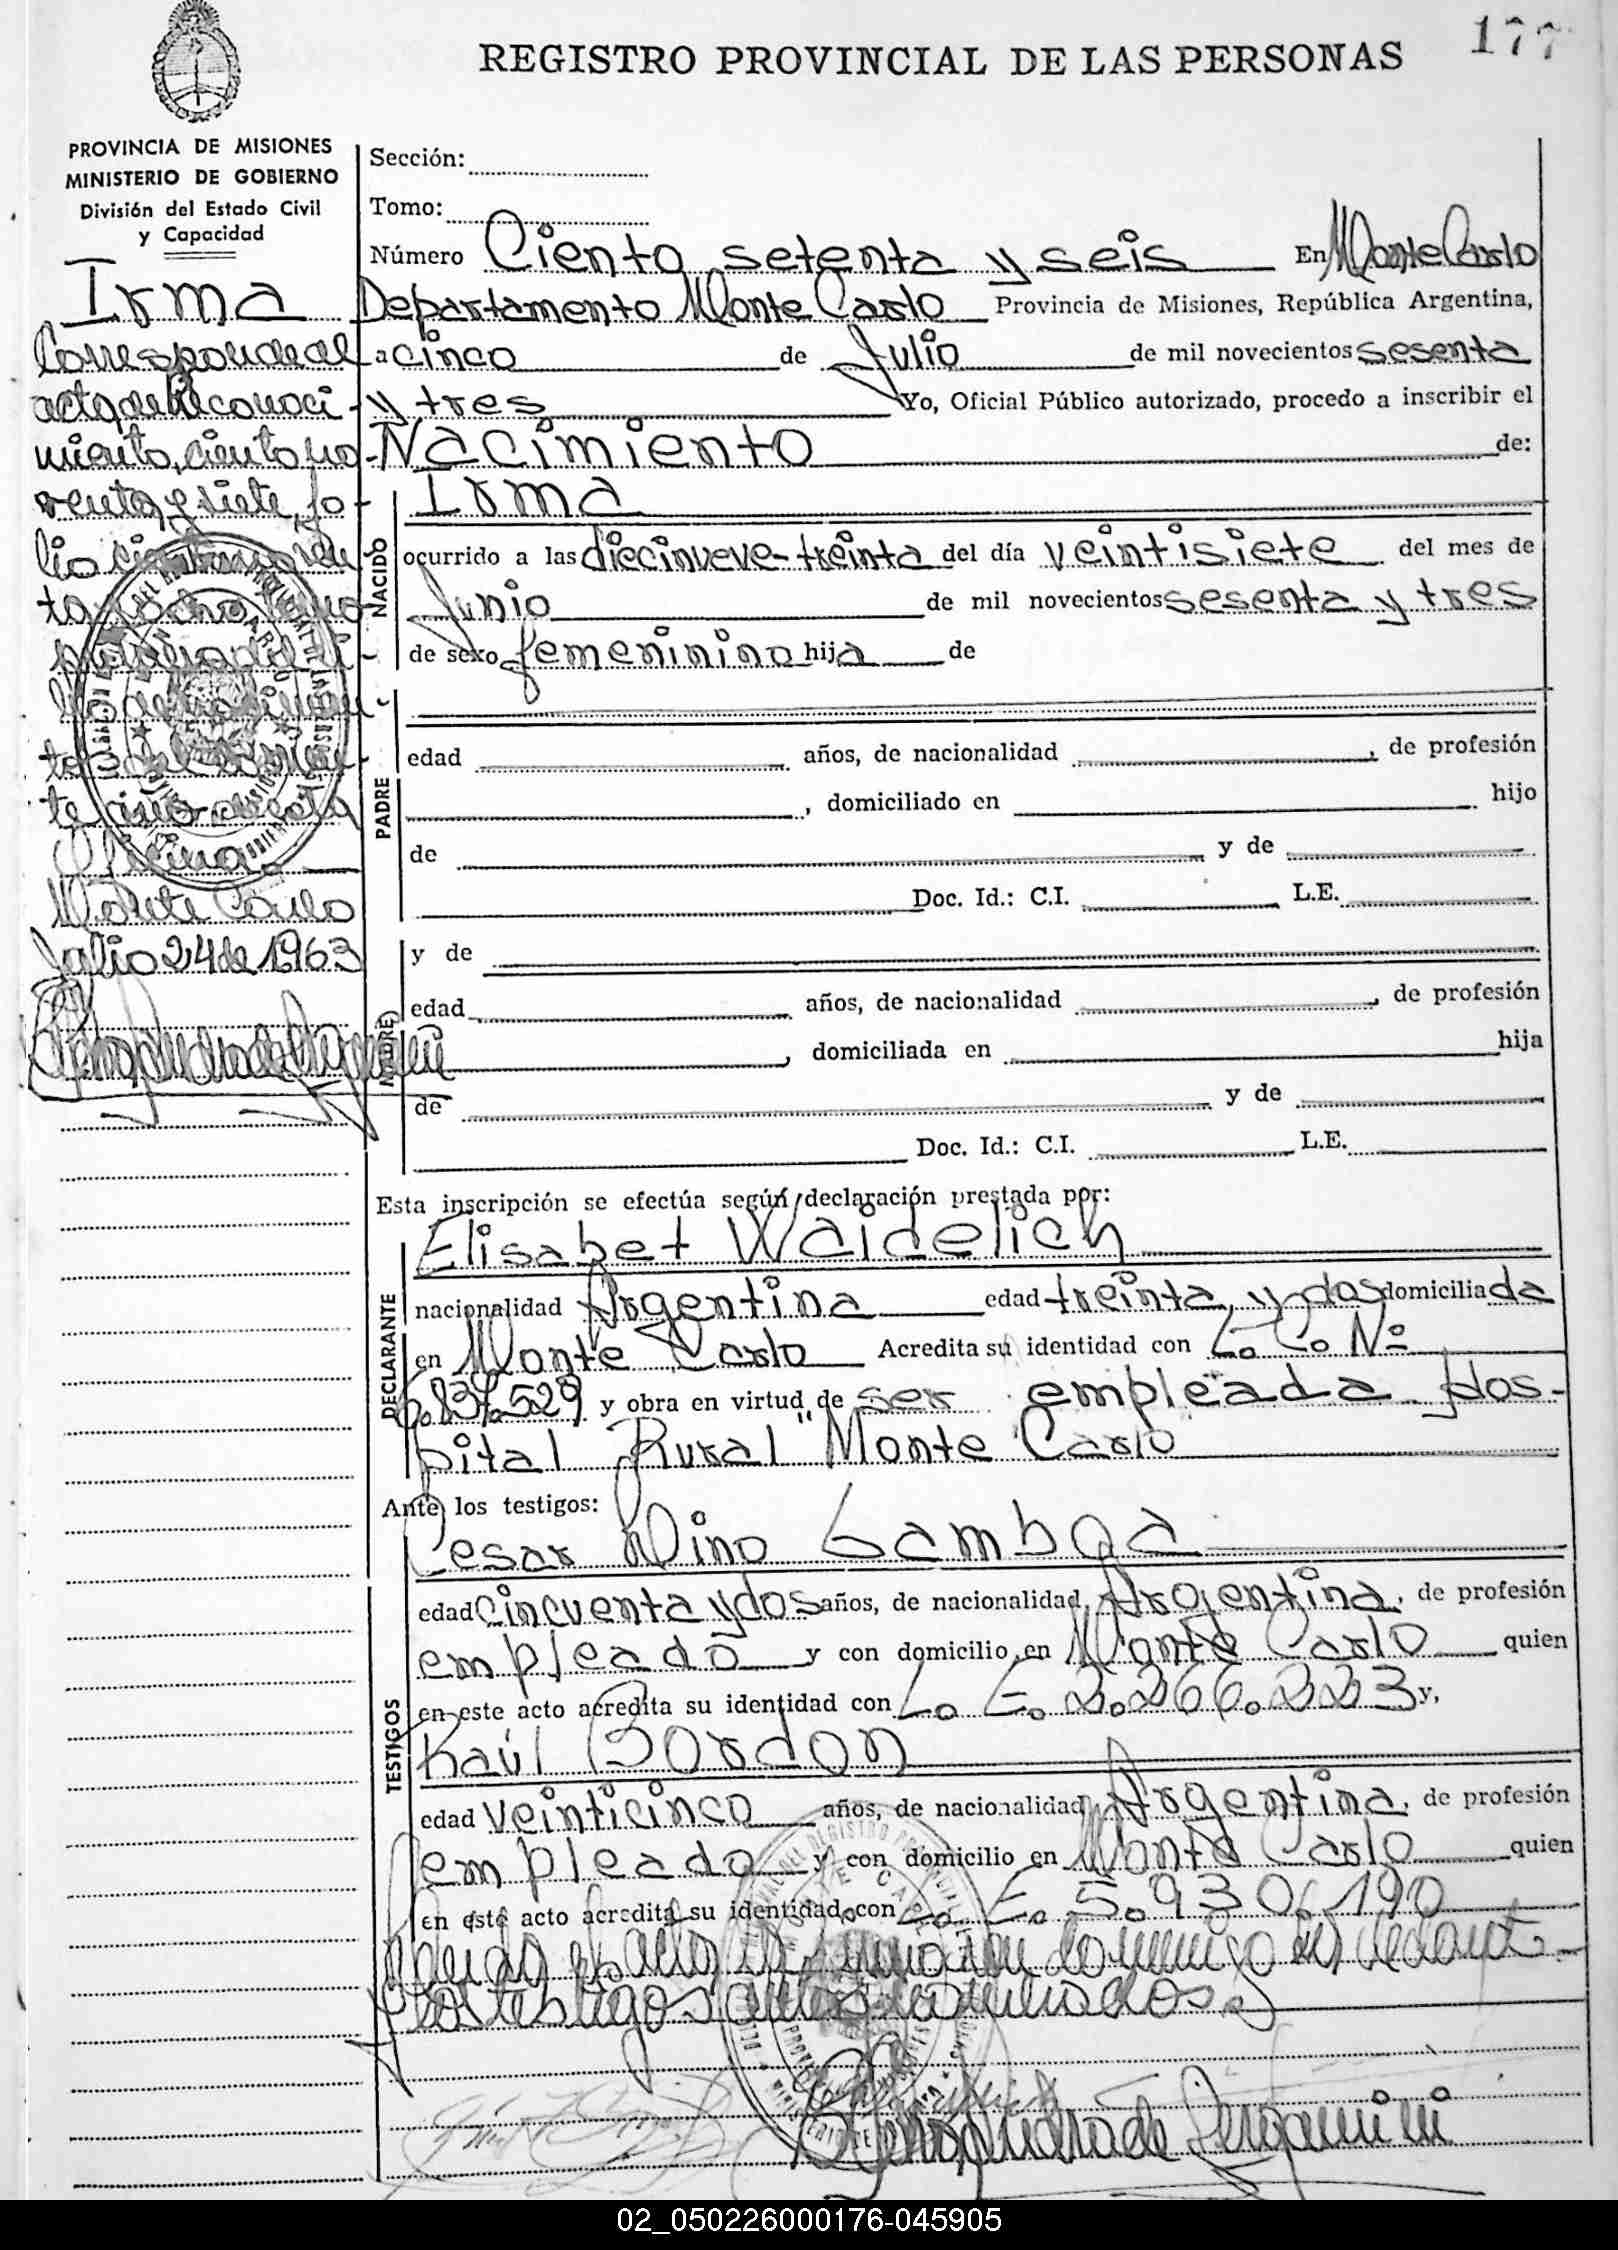 177
REGISTRO PROVINCIAL DE LAS PERSONAS
PROVINCIA DE MISIONES
MINISTERIO DE GOBIERNO
División del Estado Civil
y Capacidad
Irma
Corresponde al
acta de Reconoci-
miento, ciento no-
venta y siete, fo-
lio ciento noven
ta y ocho, tomo
te año de esta
Oficina.
Monte Carlo
Julio 24 de 1963
Sección:
Tomo:
Número Ciento setenta y seis En Monte Carlo
Departamento Monte Carlo Provincia de Misiones, República Argentina,
a cinco de Julio de mil novecientos sesenta
y tres Yo, Oficial Público autorizado, procedo a inscribir el
Nacimiento de:
NACIDO
Irma
ocurrido a las diecinueve-treinta del día veintisiete del mes de
Junio de mil novecientos sesenta y tres
de sexo femeninino hija de
PADRE
edad años, de nacionalidad , de profesión
, domiciliado en hijo
de y de
Doc. Id.: C.I. L.E.
MADRE
y de
edad años, de nacionalidad , de profesión
, domiciliada en hija
de y de
Doc. Id.: C.I. L.E.
Esta inscripción se efectúa según declaración prestada por:
DECLARANTE
Elisabet Waidelich
nacionalidad Argentina edad treinta y dos domiciliada
en Monte Carlo Acredita su identidad con L. C. Nº
6.837.529 y obra en virtud de ser empleada Hos-
pital Rural "Monte Carlo
Ante los testigos:
TESTIGOS
Cesar Dino Gamboa
edad cincuenta y dos años, de nacionalidad Argentina, de profesión
empleado y con domicilio en Monte Carlo quien
en este acto acredita su identidad con L. E. 2.266.223 y,
Raúl Bordon
edad veinticinco años, de nacionalidad Argentina, de profesión
empleado y con domicilio en Monte Carlo quien
en este acto acredita su identidad con L. E. 5.930.190
Leida el acta la firman conmigo el declarante
los testigos antes nominados.
02_050226000176-045905